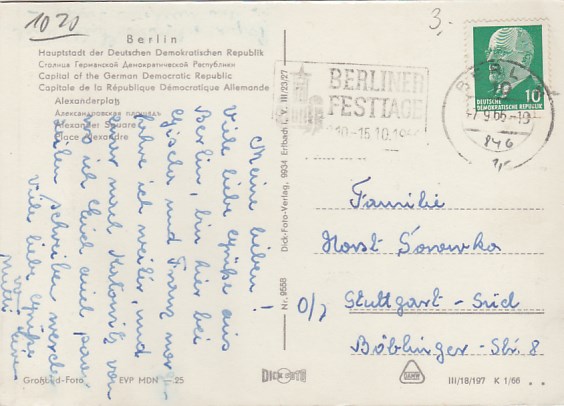 1020
3,-
Berlin
Hauptstadt der Deutschen Demokratischen Republik
Столица Германской Демократической Республики
Capital of the German Democratic Republic
Capitale de la République Démocratique Allemande
Alexanderplatz
Александровская площадь
Alexander Square
Place Alexandre
BERLINER
FESTTAGE
10.-15.10.
BERLIN
7.9.66-19
DEUTSCHE
DEMOKRATISCHE REPUBLIK
10
846
1,-
Meine Lieben!
Viele liebe Grüße aus
Berlin, bin hier bei
Gisler und Franz mor-
fahre ich weiter, und
zwar nach
wo ich Euch ein paar
Zeilen schreiben werde
Viele liebe Grüße
Mutti
Familie
Horst
O/7 Stuttgart-Süd
Böblinger-Str. 8
Dick-Foto-Verlag, 9934 Erlbach i. V. III/23/27
Nr. 9558
Großbild-Foto EVP MDN -.25
DICK FOTO
III/18/197 K 1/66